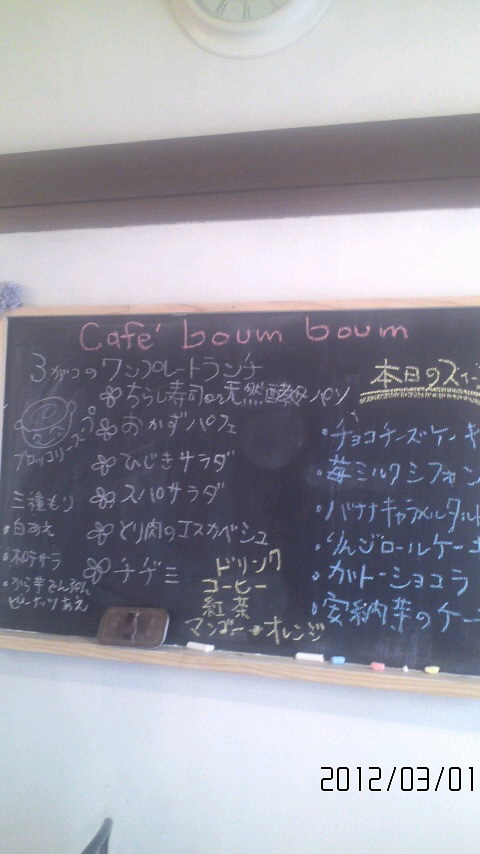 Café boum boum
3がつのワンプレートランチ
ちらし寿司or天然酵母パン
おかずパフェ
ひじきサラダ
スパサラダ
とり肉のエスカベシュ
チヂミ
ブロッコリースープ
三種もり
・白あえ
・ポテサラ
ピーナッツあえ
ドリンク
コーヒー
紅茶
マンゴー・オレンジ
本日のスイー
・チョコチーズケーキ
・苺ミルクシフォン
・バナナキャラメルタルト
・りんごロールケーキ
・ガトーショコラ
・安納芋のケー
2012/03/01